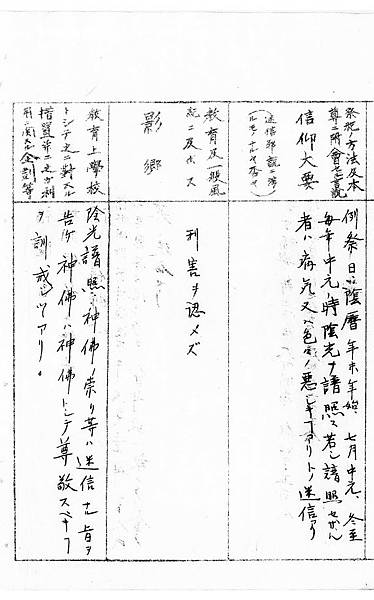 祭祀ノ方法及本
尊ニ附會セル
信仰大要
(迷信邪説ニ渉
ルモノナルヤ否ヤ)
例祭日ハ陰暦年末年始、七月中元、冬至
毎年中元ノ時陰光ヲ請照ス若シ請照セザル
者ハ病気又ハ色々ノ悪シキコトアリトノ迷信アリ
教育及一般風
紀ニ及ボス
影郷
利害ヲ認メズ
教育上學校
トシテ之ニ対スル
措置並ニ之ガ利
用ニ関スル企劃等
陰光請照ノ神佛ノ祟リ等ハ迷信ナル旨ヲ
告ゲ神佛ハ神佛トシテ尊敬スベキコト
ヲ訓戒シツツアリ。